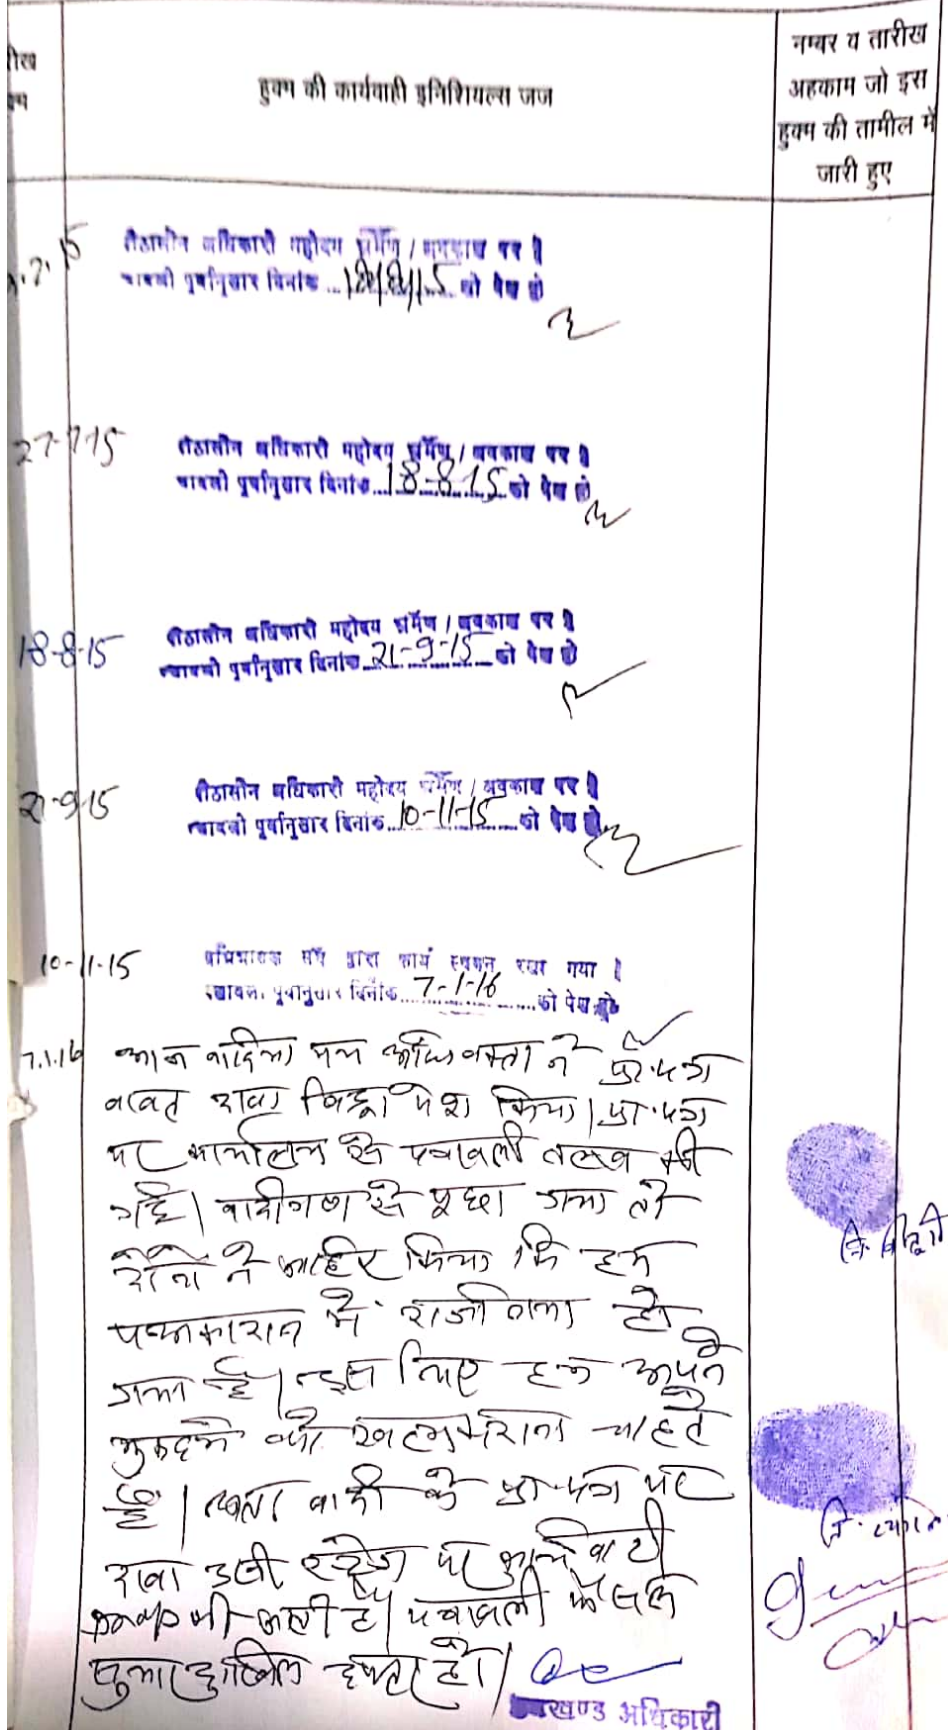 हुक्म की कार्यवाही इनिशियल्स जज
नम्बर व तारीख
अहकाम जो इस
हुक्म की तामील में
जारी हुए
पीठासीन अधिकारी महोदय भ्रमण / अवकाश पर है
पूर्वानुसार दिनांक को पेश हो
27-7-15
पीठासीन अधिकारी महोदय भ्रमण / अवकाश पर है
पूर्वानुसार दिनांक 18-8-15 को पेश हो
18-8-15
पीठासीन अधिकारी महोदय भ्रमण / अवकाश पर है
पूर्वानुसार दिनांक 21-9-15 को पेश हो
21-9-15
पीठासीन अधिकारी महोदय भ्रमण / अवकाश पर है
पूर्वानुसार दिनांक 10-11-15 को पेश हो
10-11-15
अभिभाषक संघ द्वारा कार्य स्थगन रखा गया है
पूर्वानुसार दिनांक 7-1-16 को पेश हो
7.1.16
आज वादिया मय अधिवक्ता ने प्रा.पत्र
बाबत दावा विड्रो पेश किया। प्रा.पत्र
पर कार्यालय से पत्रावली तलब की
गई। वादीगण से पूछा गया तो
दोनों ने जाहिर किया कि हम
पक्षकारान में राजीनामा हो
गया है। इस लिए हम अपने
मुकदमे को खत्म कराना चाहते
है। वादी के प्रा.पत्र पर
दावा इसी स्टेज पर
की जाती है। पत्रावली फैसल
दाखिल दफ्तर हो।
खण्ड अधिकारी